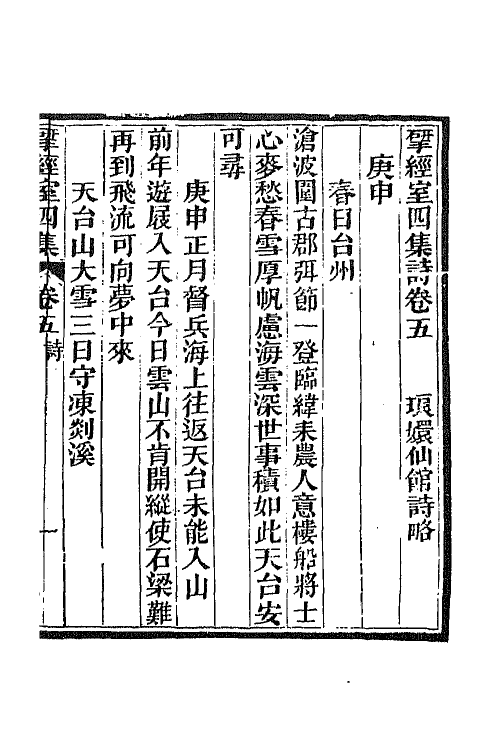 揅經室四集詩卷五　琅嬛仙館詩略
庚申
春日台州
滄波圍古郡弭節一登臨緯耒農人意樓船將士
心麥愁春雪厚帆慮海雲深世事積如此天台安
可尋
庚申正月督兵海上往返天台未能入山
前年遊屐入天台今日雲山不肯開縱使石梁難
再到飛流可向夢中來
天台山大雪三日守凍剡溪
揅經室四集　卷五詩　一